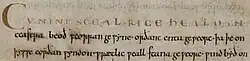 CYNING SCEAL RICE HEALDAN
ceastra beoð feorran gesyne. orðanc enta geweorc. þa þe on
þysse eorðan syndon. wrætlic weall stana geweorc. wind byð on